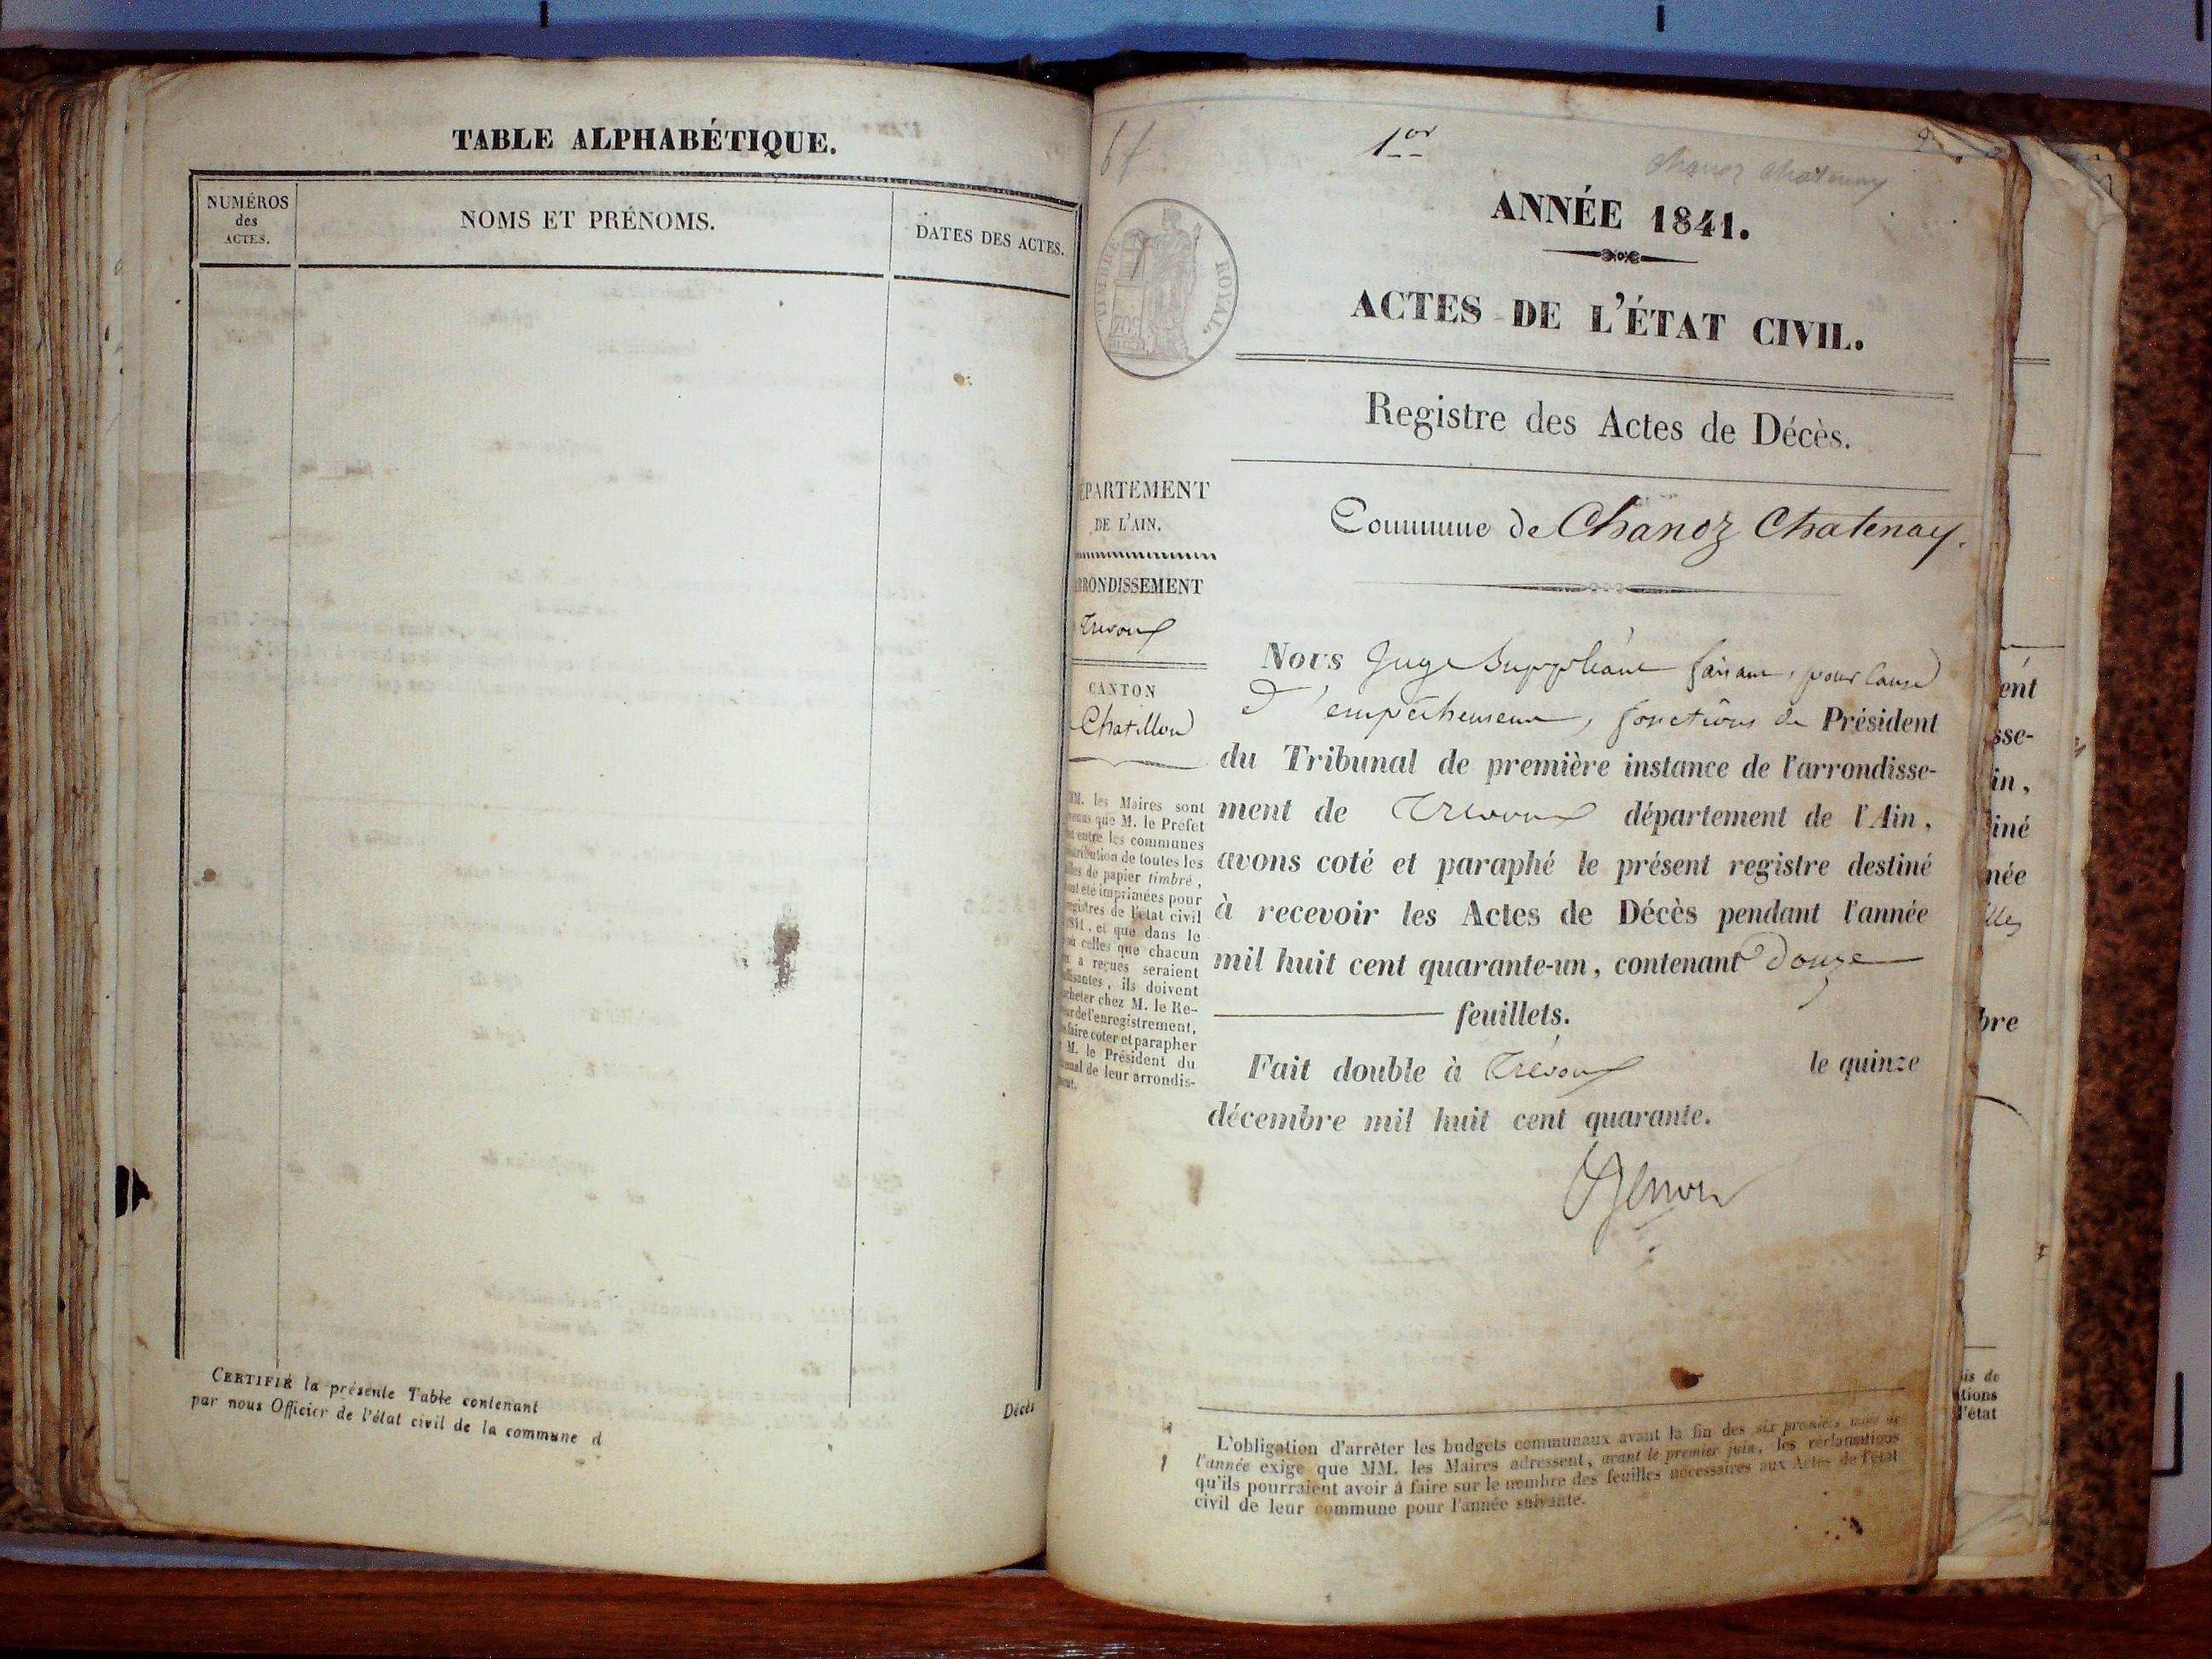 TABLE ALPHABÉTIQUE.
NUMÉROS
des
ACTES.
NOMS ET PRÉNOMS.
DATES DES ACTES.
CERTIFIÉ la présente Table contenant
par nous Officier de l'état civil de la commune d
Décès
1er
Chanoz Chatenay
ANNÉE 1841.
TIMBRE ROYAL.
ACTES DE L'ÉTAT CIVIL.
Registre des Actes de Décès.
ÉPARTEMENT
DE L'AIN.
Commune de Chanoz Chatenay.
RRONDISSEMENT
Trevoux
CANTON
Chatillon
MM. les Maires sont
que M. le Préfet
entre les communes
de toutes les
de papier timbré,
été imprimées pour
de l'état civil
1841, et que dans le
celles que chacun
a reçues seraient
, ils doivent
chez M. le Re-
de l'enregistrement,
faire coter et parapher
M. le Président du
de leur arrondis-
Nous Juge Suppléant faisant, pour cause
d'empêchement, fonctions de Président
du Tribunal de première instance de l'arrondisse-
ment de Trevoux département de l'Ain,
avons coté et paraphé le présent registre destiné
à recevoir les Actes de Décès pendant l'année
mil huit cent quarante-un, contenant Douze
feuillets.
Fait double à Trévoux le quinze
décembre mil huit cent quarante.
L'obligation d'arrêter les budgets communaux avant la fin des six premiers mois de
l'année exige que MM. les Maires adressent, avant le premier juin, les réclamations
qu'ils pourraient avoir à faire sur le nombre des feuilles nécessaires aux Actes de l'état
civil de leur commune pour l'année suivante.
ent
sse-
in,
iné
née
lles
bre
is de
tions
l'état